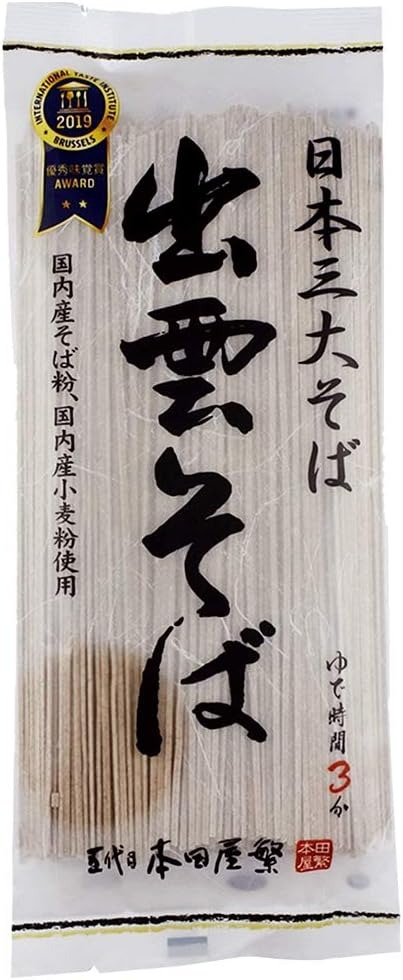 日本三大そば
出雲そば
INTERNATIONAL TASTE INSTITUTE
2019
BRUSSELS
優秀味覚賞
AWARD
国内産そば粉、国内産小麦粉使用
ゆで時間3分
五代目 本田屋繁
田繁
本屋